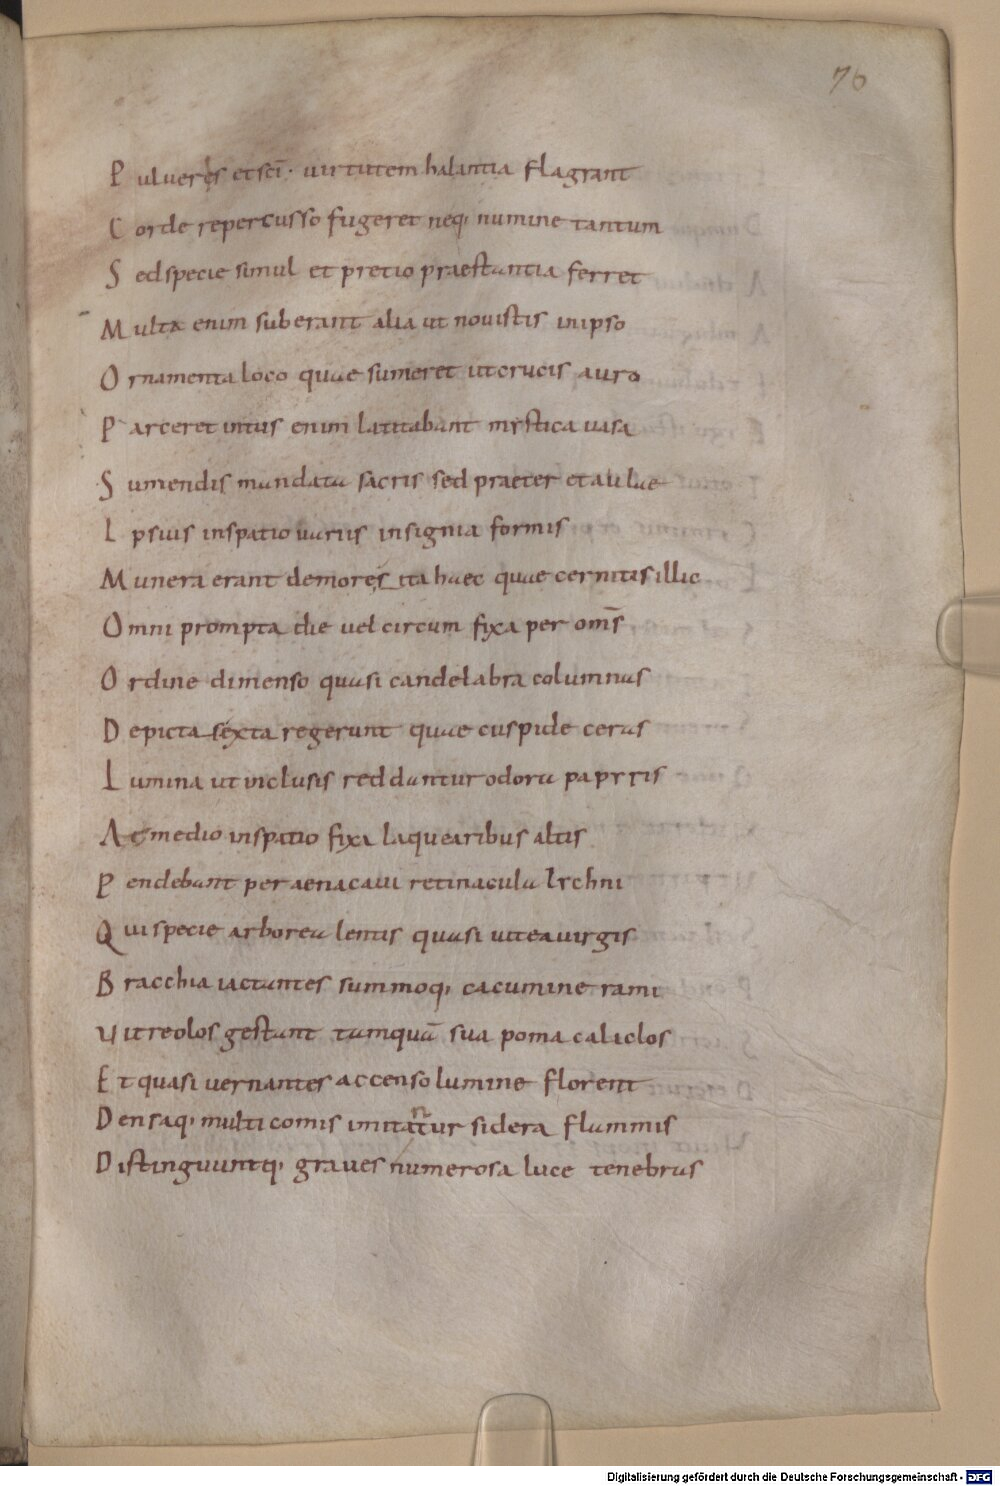 76
Pulveres et scī · virtutem halantia flagrant
Corde repercusso fugeret neq; numine tantum
Sed specie simul et pretio praestantia ferret
Multa enim suberant alia ut novistis in ipso
Ornamenta loco quae sumeret ut crucis auro
Parceret intus enim latitabant mystica vasa
Sumendis mandata sacris sed praeter et aulae
Ipsius in spatio variis insignia formis
Munera erant de more ita haec quae cernitis illic
Omni prompta die vel circum fixa per om̄s
Ordine dimenso quasi candelabra columnas
Depicta sexta regerunt quae cuspide ceras
Lumina ut inclusis reddantur odora papyris
Ac medio in spatio fixa laquearibus altis
Pendebant per aena cavi retinacula lychni
Qui specie arborea lentis quasi vitea virgis
Bracchia iactantes summoq; cacumine rami
Vitreolos gestant tamquā sua poma caliclos
Et quasi vernantes accenso lumine florent
Densaq; multicomis imitatur sidera flammis
Distinguuntq; graves numerosa luce tenebras
Digitalisierung gefördert durch die Deutsche Forschungsgemeinschaft - DFG